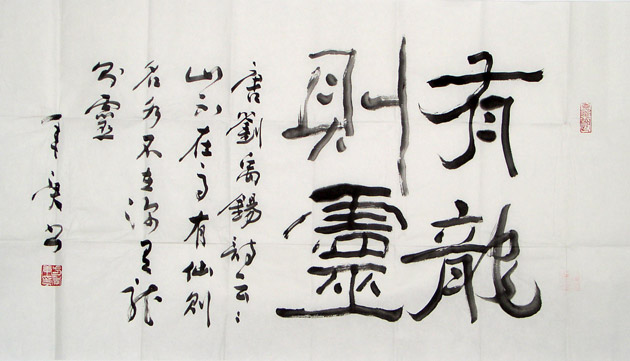 有龍
則靈
唐劉禹錫詩云〻
山不在高有仙則
名水不在深有龍
則靈